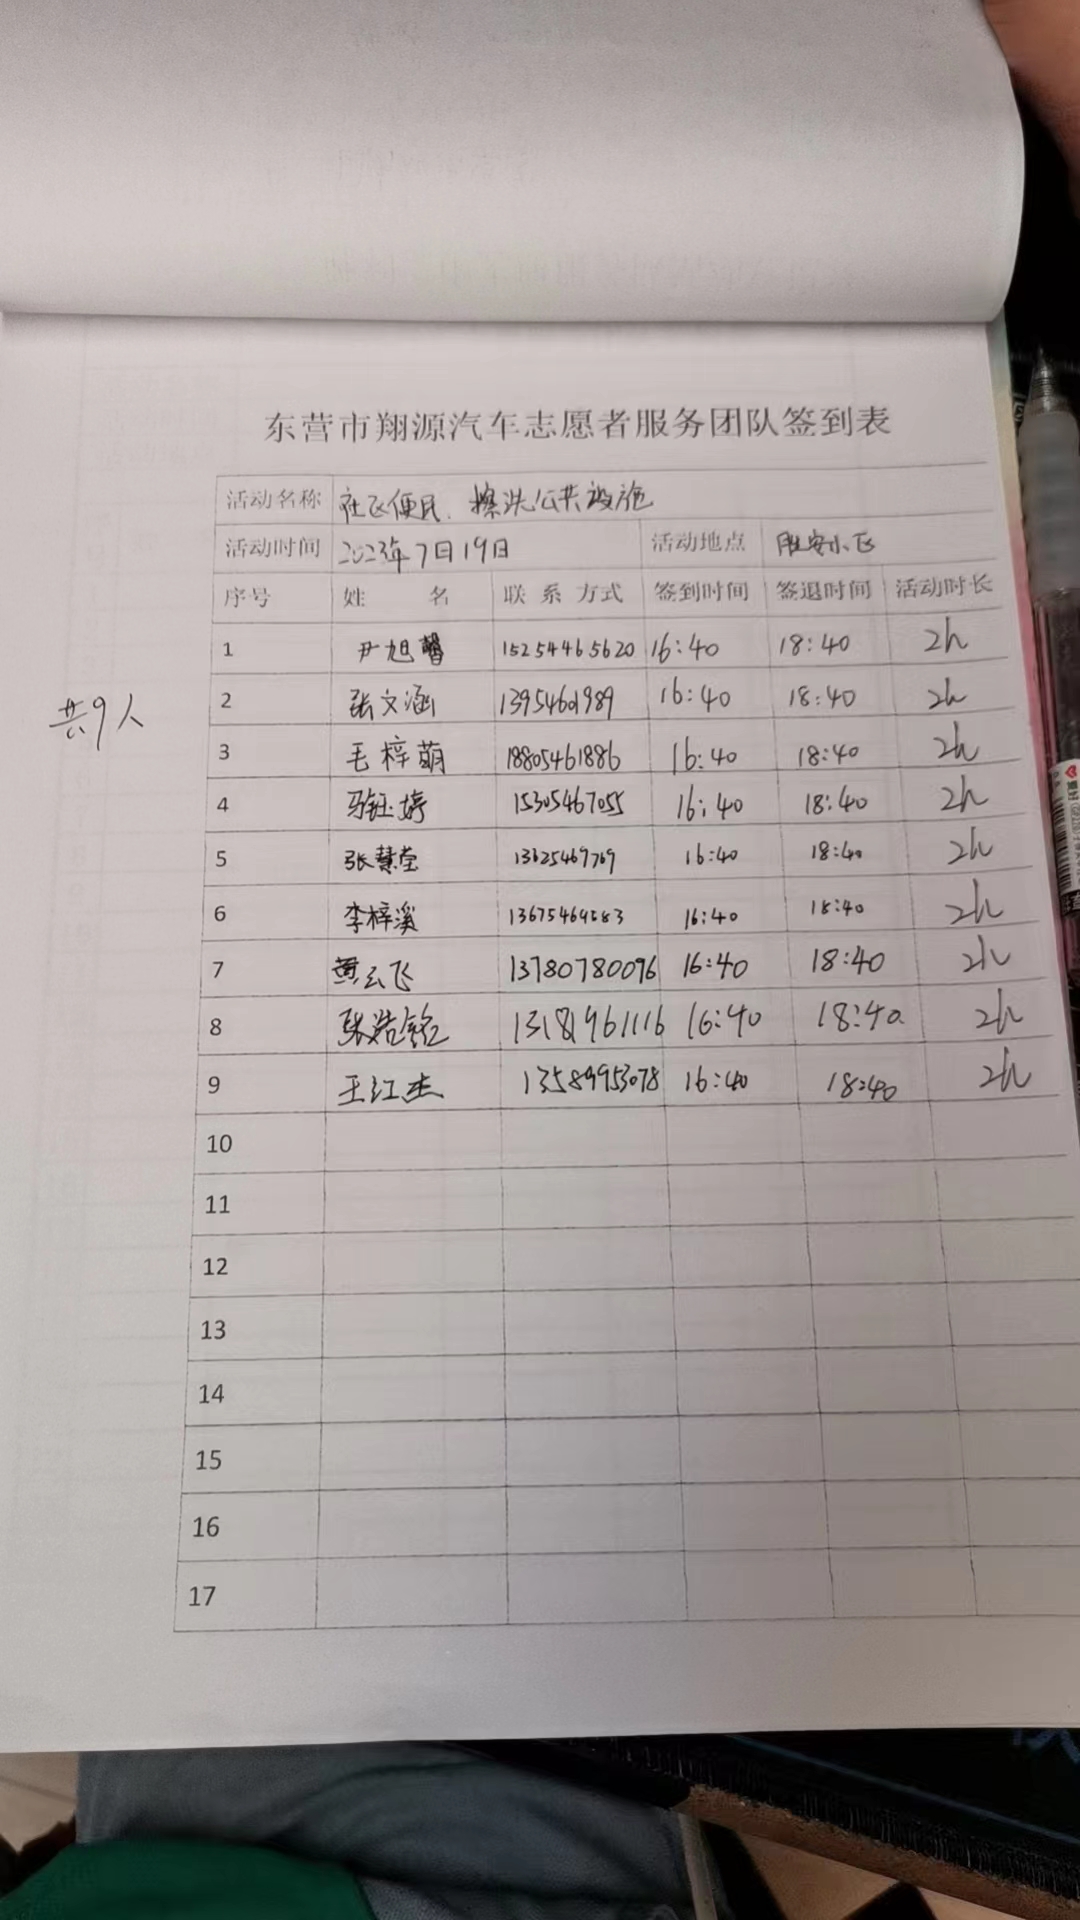 东营市翔源汽车志愿者服务团队签到表
活动名称 社区便民、擦洗公共设施
活动时间 2023年7月19日 活动地点 胜安小区
序号 姓 名 联系方式 签到时间 签退时间 活动时长
1 尹旭馨 15254465620 16:40 18:40 2h
共9人
2 张文涵 13954601989 16:40 18:40 2h
3 毛梓萌 18805461886 16:40 18:40 2h
4 马钰婷 15305467055 16:40 18:40 2h
5 张慧莹 13625469769 16:40 18:40 2h
6 李梓溪 16:40 18:40 2h
7 黄云飞 13780780096 16:40 18:40 2h
8 张浩铭 13181961116 16:40 18:40 2h
9 王江杰 13589953078 16:40 18:40 2h
10
11
12
13
14
15
16
17